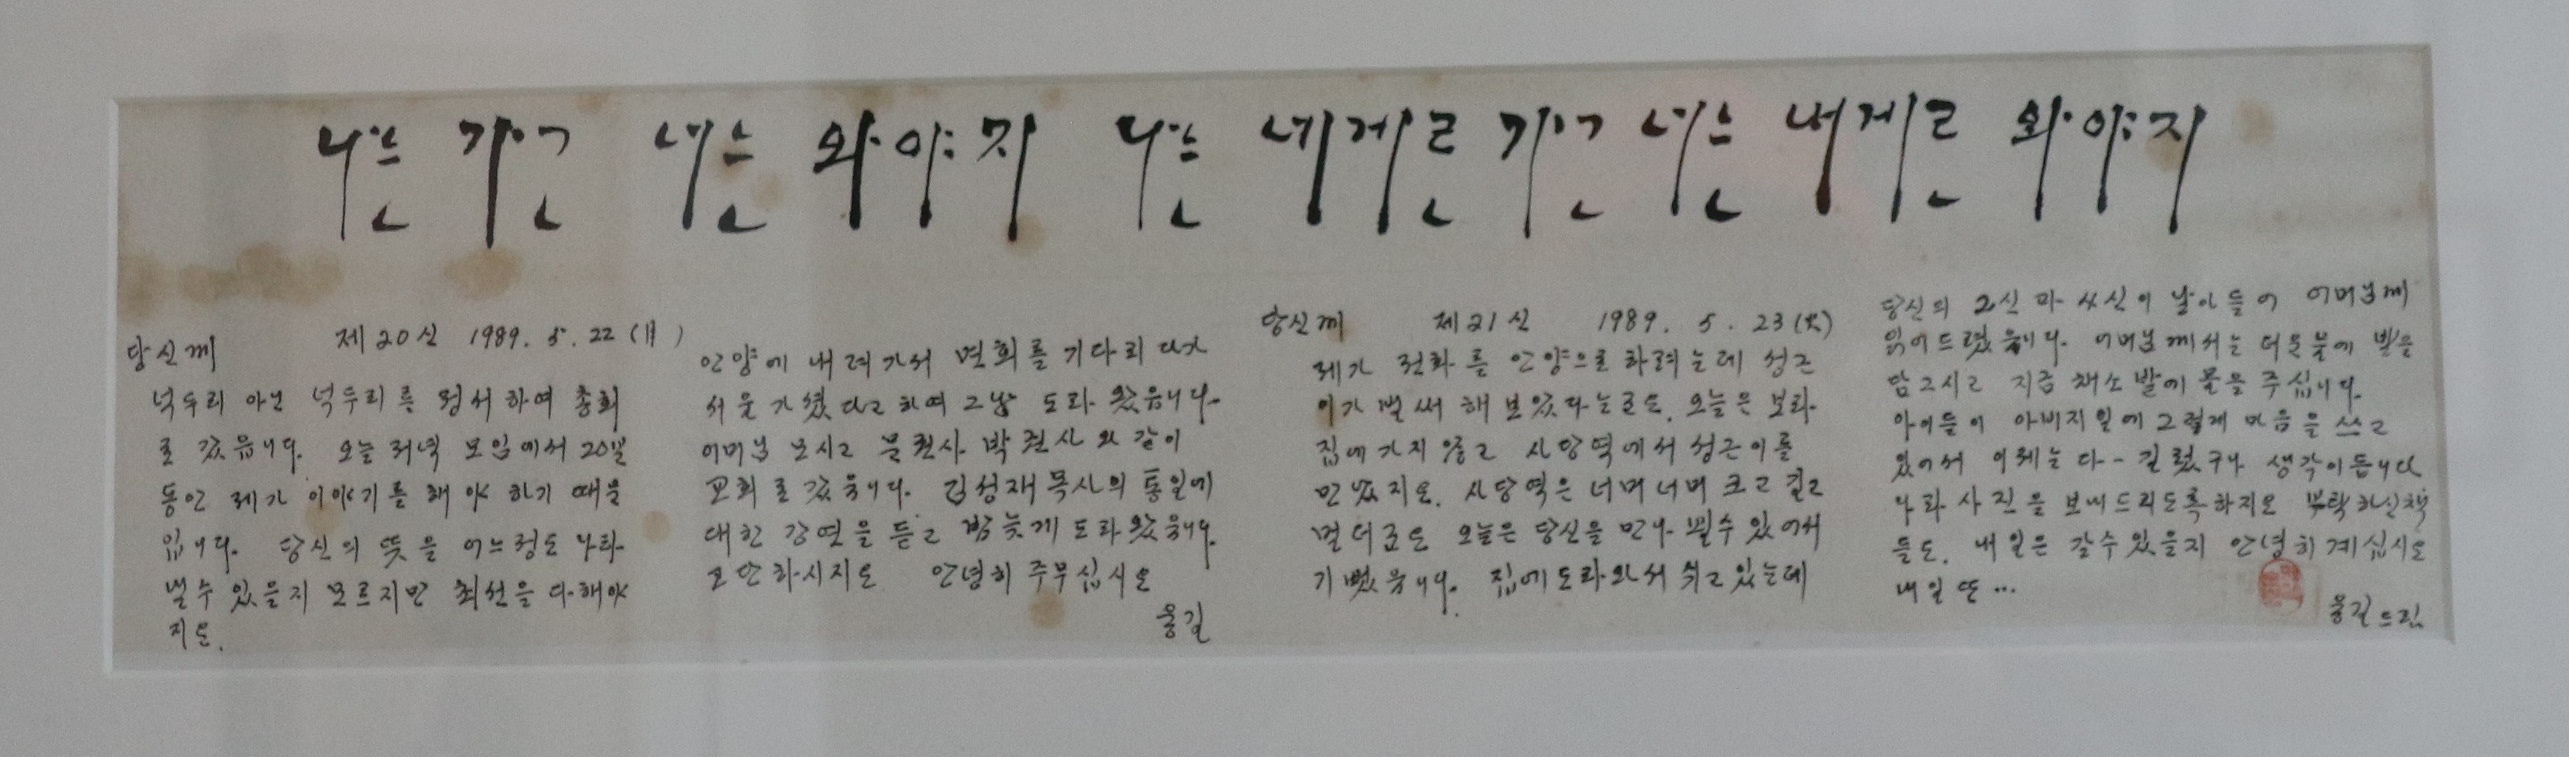 나는 가고 너는 와야지 나는 네게로 가고 너는 내게로 와야지
당신께 제20신 1989. 5. 22 (月)
넉두리 아닌 넉두리를 원서하여 총회
로 갔읍니다. 오늘 저녁 모임에서 20분
동안 제가 이야기를 해야 하기 때문
입니다. 당신의 뜻을 어느정도 나타
낼 수 있을지 모르지만 최선을 다해야
지요.
안양에 내려가서 면회를 기다리다가
서울 가셨다고 하여 그냥 도라왔읍니다.
어머님 모시고 문권사 박권사와 같이
교회로 갔읍니다. 김성재목사의 통일에
대한 강연을 듣고 밤늦게 도라왔읍니다.
고단하시지요 안녕히 주무십시요
용길
당신께 제21신 1989. 5. 23 (火)
제가 전화를 안양으로 하려는데 성근
이가 벌써 해 보았다는군요. 오늘은 보라
집에 가지 않고 사당역에서 성근이를
만났지요. 사당역은 너머너머 크고 길고
멀더군요 오늘은 당신을 만나 뵐수 있어서
기뻤읍니다. 집에 도라와서 쉬고 있는데
당신의 2신과 쓰신이 날아들어 어머님께
읽어드렸읍니다. 어머님께서는 더운물에 발을
담그시고 지금 채소밭에 물을 주십니다.
아이들이 아버지일에 그렇게 마음을 쓰고
있어서 이제는 다- 길렀구나 생각이듭니다
나라사진을 보내드리도록하지요 부탁하신책
들도. 내일은 갈수있을지 안녕히 계십시요
내일 또...
용길드림